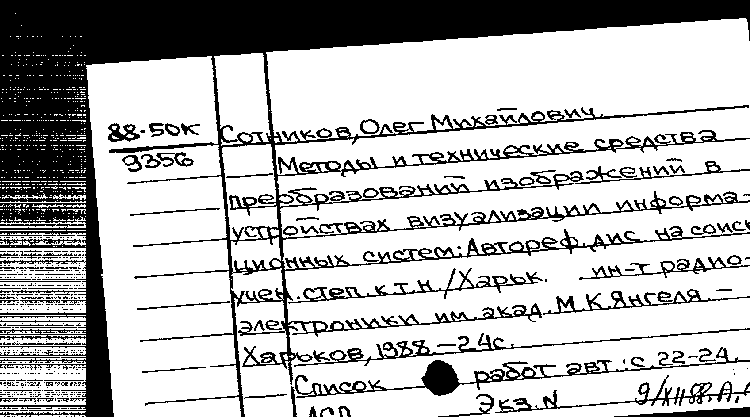 88-50К Сотников, Олег Михайлович.
9356 Методы и технические средства
преобразований изображений в
устройствах визуализации информа-
ционных систем: Автореф. дис. на соиск
учен. степ. к.т.н. / Харьк. ин-т радио-
электроники им. акад. М.К. Янгеля. –
Харьков, 1988. – 24с.
Список работ авт.: с. 22-24.
Экз. N